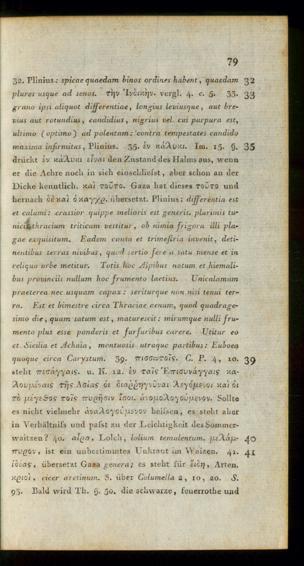 79
32. Plinius: spicae quaedam binos ordines habent, quaedam 32
plures usque ad senos. τὴν Ἰνδικήν. vergl. 4. c. 5. 33. 33
grano ipsi aliquot differentiae, longius leviusque, aut bre-
vius aut rotundius, candidius, nigrius vel cui purpura est,
ultimo (optimo) ad polentam: contra tempestates candido
maxima infirmitus, Plinius. 35. ἐν κάλυκι. Im. 15. §. 35
drückt ἐν κάλυκι εἶναι den Zustand des Halms aus, wenn
er die Aehre noch in sich einschliefst, aber schon an der
Dicke kenntlich. καὶ τοῦτο. Gaza hat dieses τοῦτο und
hernach übersetzt. Plinius: differentia est
et calami: crassior quippe melioris est generis. plurimis tu-
nicis thracium triticum vestitur, ob nimia frigora illi pla-
gae exquisitum. Eadem causa et trimestria invenit, deti-
nentibus terras nivibus, quod tertio fere a satu mense et in
reliquo orbe metitur. Totis hoc Alpibus notum et hiemali-
bus provinciis nullum hoc frumento laetius. Unicalamum
praeterea nec usquam capax: seriturque non nisi tenui ter-
ra. Est et bimestre circa Thraciae aenum, quod quadrage-
simo die, quam satum est, maturescit: mirumque nulli fru-
mento plus esse ponderis et furfuribus carere. Utitur eo
et Sicilia et Achaia, montuosis utraque partibus: Euboea
quoque circa Carystum. 39. πισσωτοῖς. C. P. 4, 10. 39
steht u. K. 12. ἐν ταῖς κα-
λουμέναις τῆς Ἀσίας οἱ διαῤῥηγνύναι λεγόμενοι καὶ οἱ
τὸ μέγεθος τοῖς πυρῆσιν ἴσοι. ἀνομολογούμενον. Sollte
es nicht vielmehr ἀναλογούμενον heissen, es steht aber
in Verhältnifs und pafst zu der Leichtigkeit des Sommer-
waitzens? 40. αἶρα, Lolch, lolium temulentum. μελάμ- 40
πυρον, ist ein unbestimmtes Unkraut im Waizen. 41. 41
ἰδέας, übersetzt Gaza genera; es steht für εἴδη, Arten.
κριοί, cicer arietinum. S. über Columella 2, 10, 20. S.
95. Bald wird Th. §. 50. die schwarze, feuerrothe und